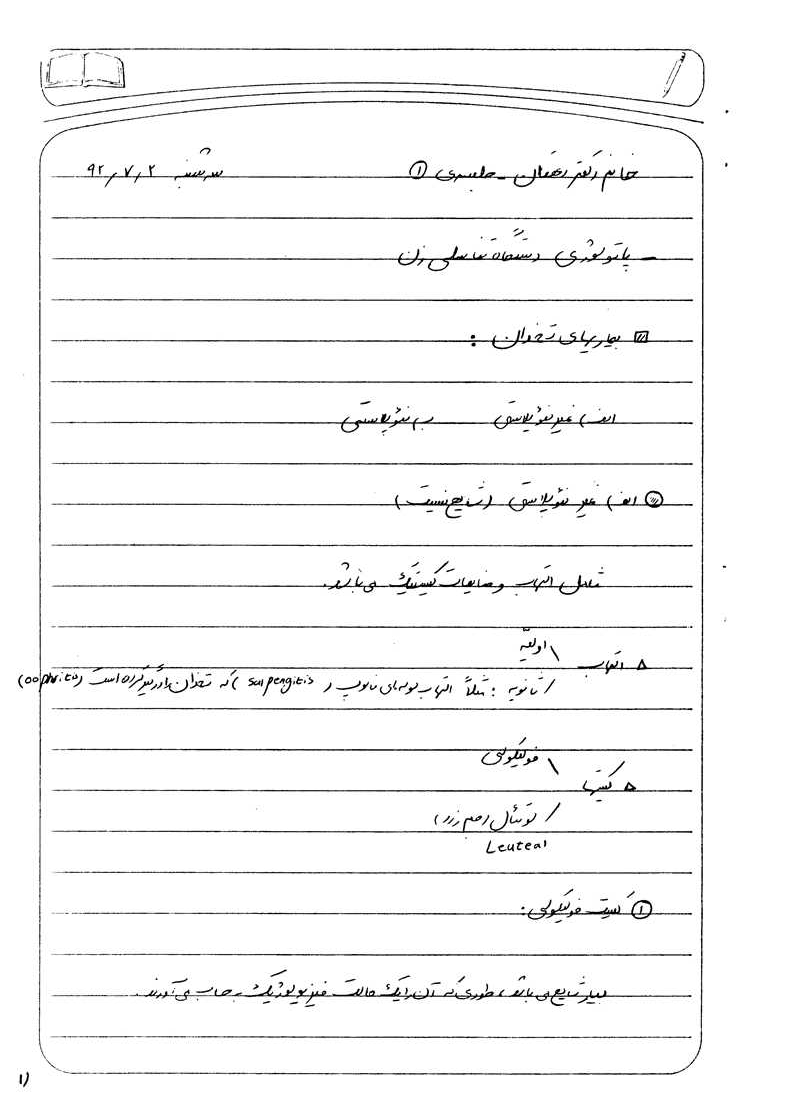 خانم دکتر دهقان - جلسه‌ی ① سه شنبه ۹۲/۷/۲
- پاتولوژی دستگاه تناسلی زن
بیماریهای تخمدان :
الف) غیر نئوپلاستی ب) نئوپلاستی
الف) غیر نئوپلاستی (شایع نیست)
شامل التهاب و ضایعات کیستیک می باشد.
اولیه
التهاب
ثانویه : مثلاً التهاب لوله‌های فالوپ (salpengitis) که تخمدان را درگیر کرده است (oophritis)
فولیکولی
کیستها
لوتئال (جسم زرد)
Leuteal
① کیست فولیکولی:
بسیار شایع می باشد، طوری که آن را یک حالت فیزیولوژیک به حساب می آورند.
۱)